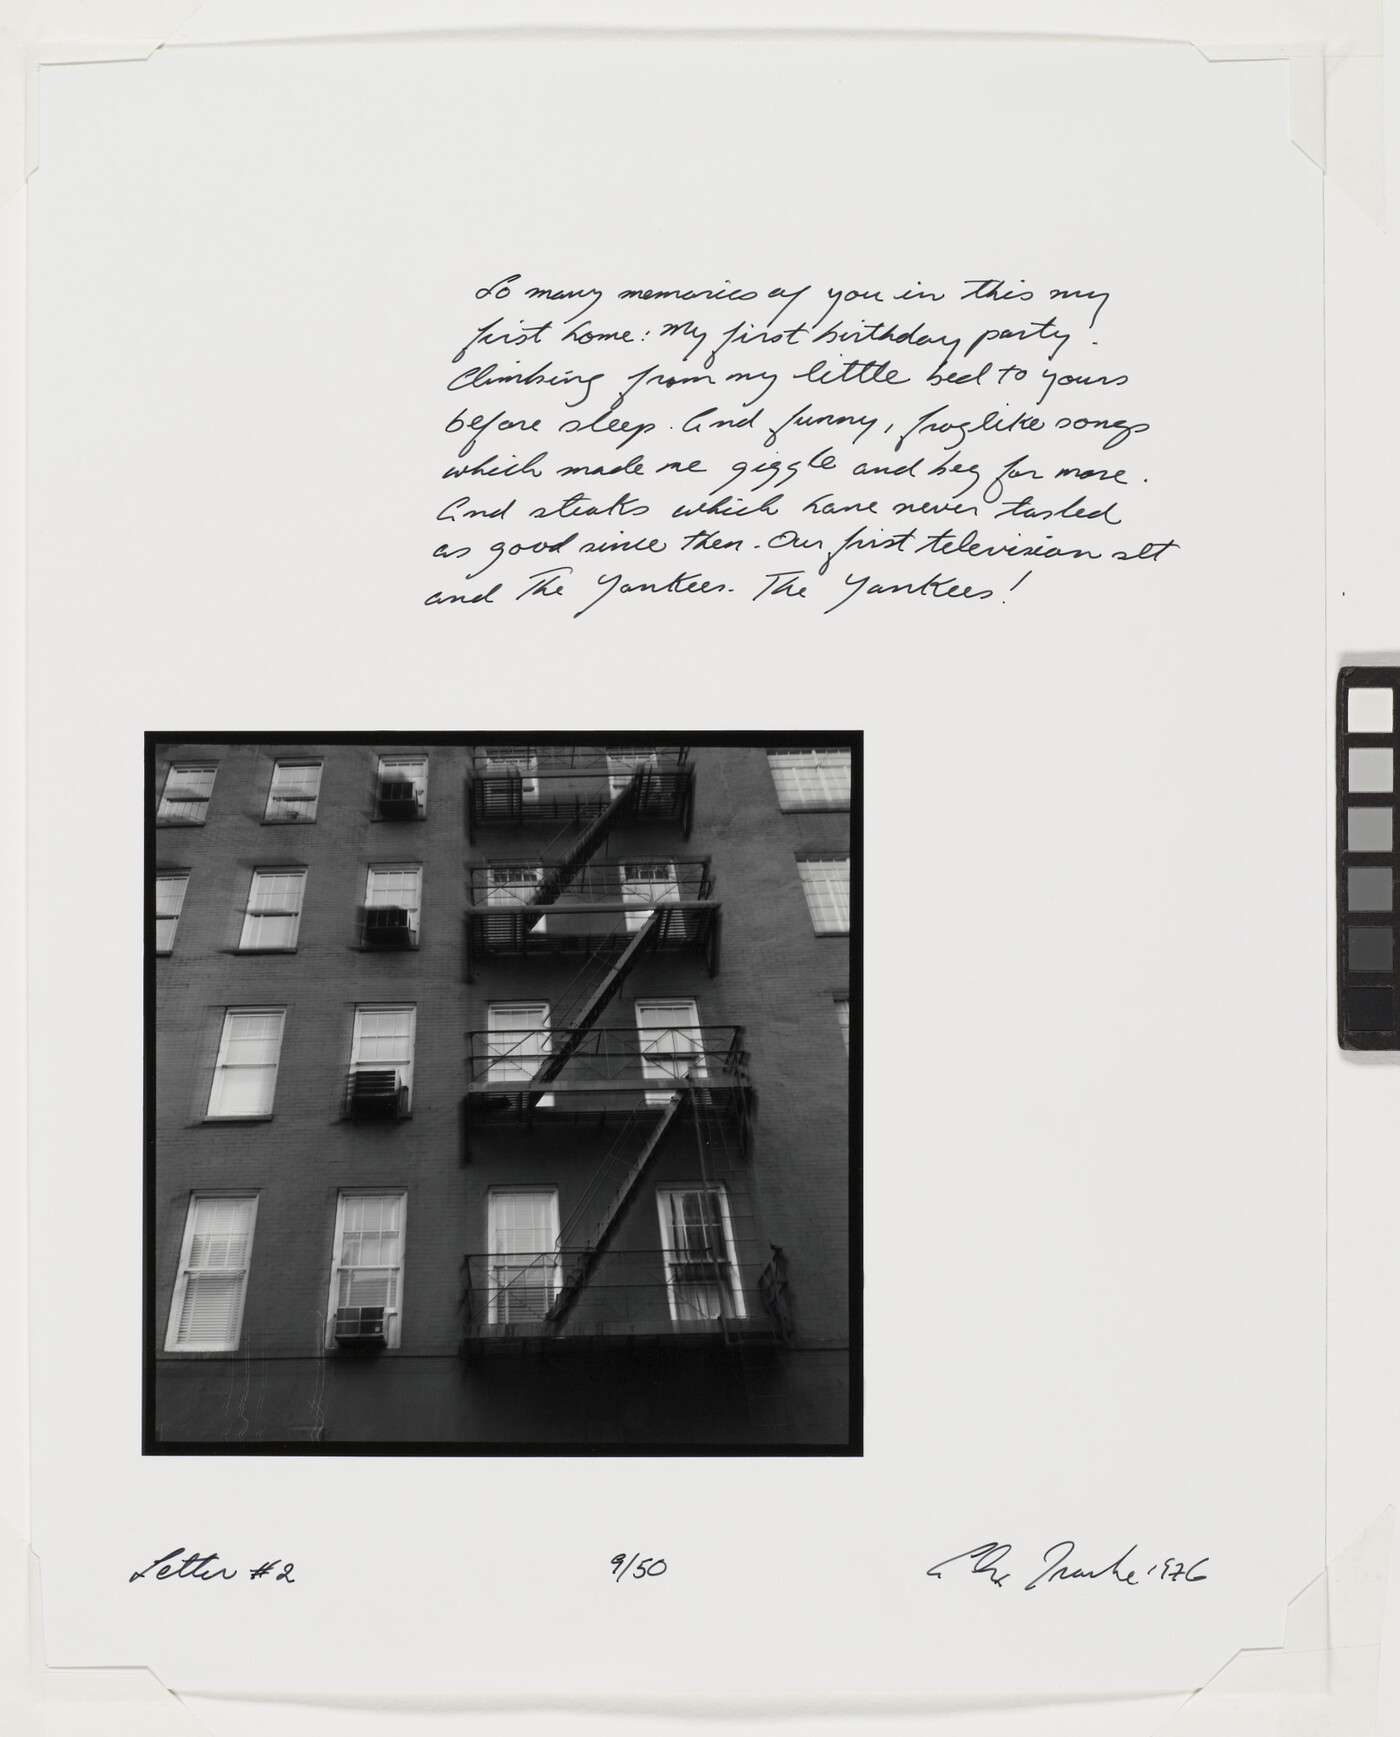 So many memories of you in this my
first home: My first birthday party.
Climbing from my little bed to yours
before sleep. And funny, froglike songs
which made me giggle and beg for more.
And steaks which have never tasted
as good since then. Our first television set
and The Yankees. The Yankees!
Letter #2
9/50
Alex Traube 1976